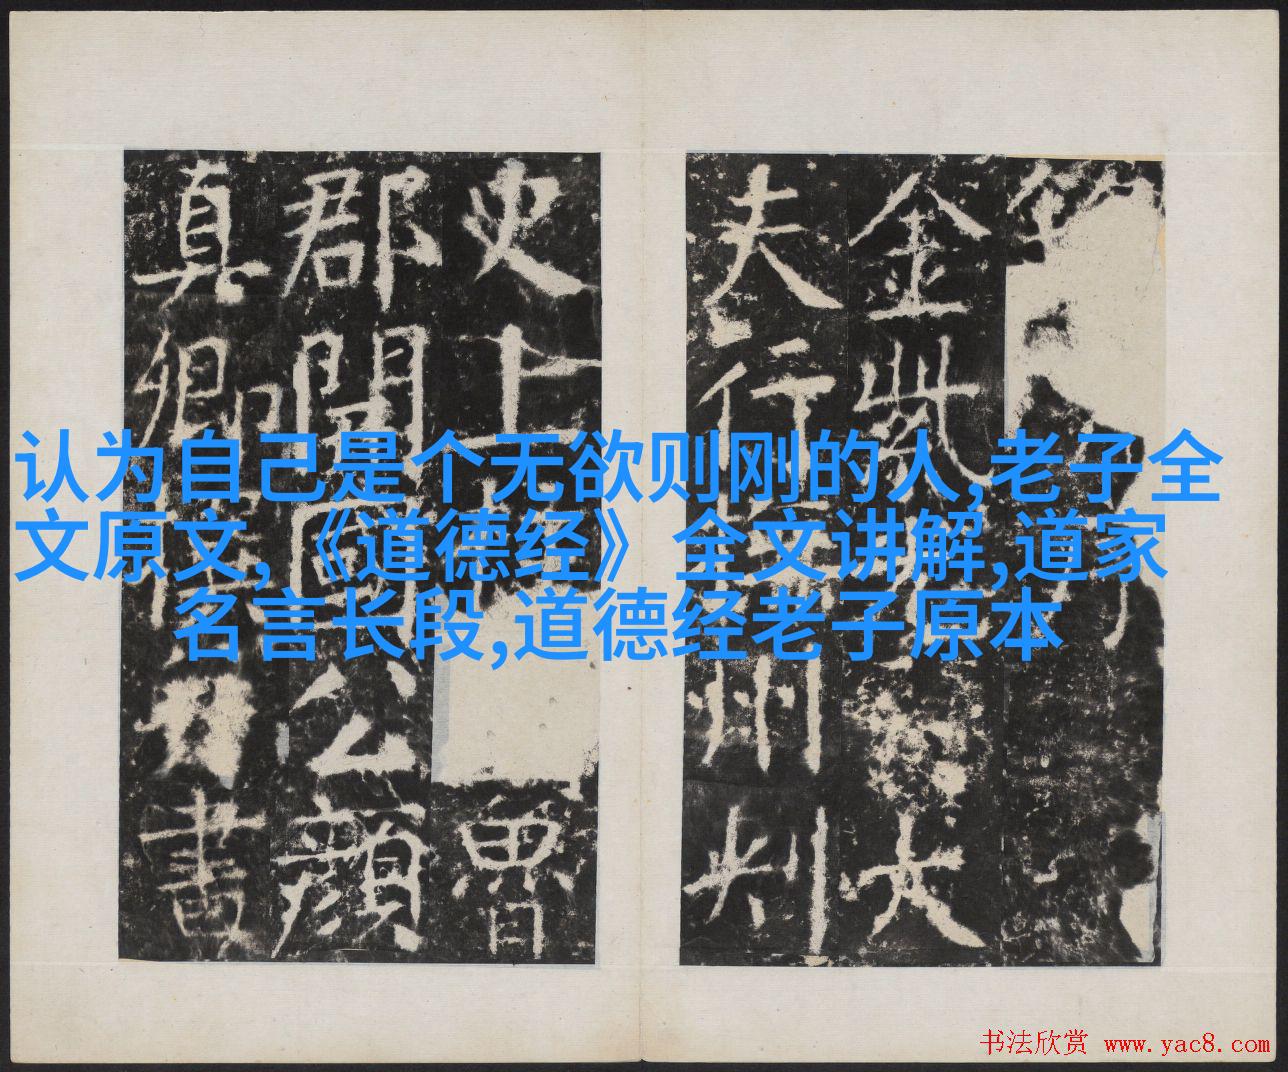 认为自己是个无欲则刚的人,老子全
文原文,《道德经》全文讲解,道家
名言长段,道德经老子原本
金紫大
夫行州刺
史上魯
郡開國公顏
真卿書
书法欣赏 www.yac8.com